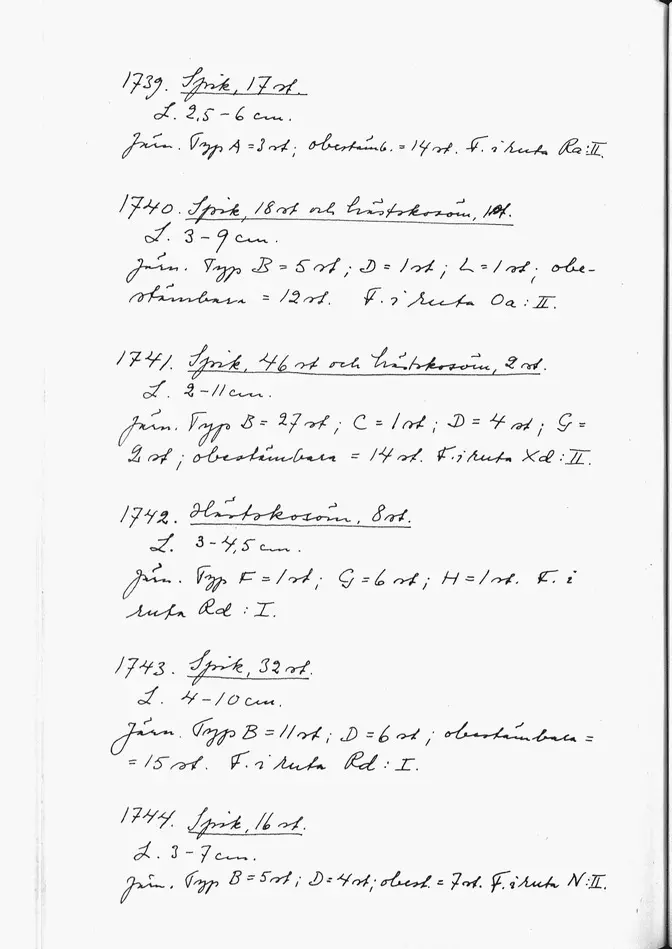 1739. Spik, 17 st.
L. 2,5-6 cm.
Järn. Typ A = 3 st; obestämb. = 14 st. F. i ruta Ra:II.
1740. Spik, 18 st och hästskosöm, 1 st.
L. 3-9 cm.
Järn. Typ B = 5 st; D = 1 st; L = 1 st; obe-
stämbara = 12 st. F. i ruta Oa : II.
1741. Spik, 46 st och hästskosöm, 2 st.
L. 2-11 cm.
Järn. Typ B = 27 st; C = 1 st; D = 4 st; G =
2 st; obestämbara = 14 st. F. i ruta Xd : II.
1742. Hästskosöm, 8 st.
L. 3-4,5 cm.
Järn. Typ F = 1 st; G = 6 st; H = 1 st. F. i
ruta Rd : I.
1743. Spik, 32 st.
L. 4-10 cm.
Järn. Typ B = 11 st; D = 6 st; obestämbara =
= 15 st. F. i ruta Rd : I.
1744. Spik, 16 st.
L. 3-7 cm.
Järn. Typ B = 5 st; D = 4 st; obest. = 7 st. F. i ruta N:II.